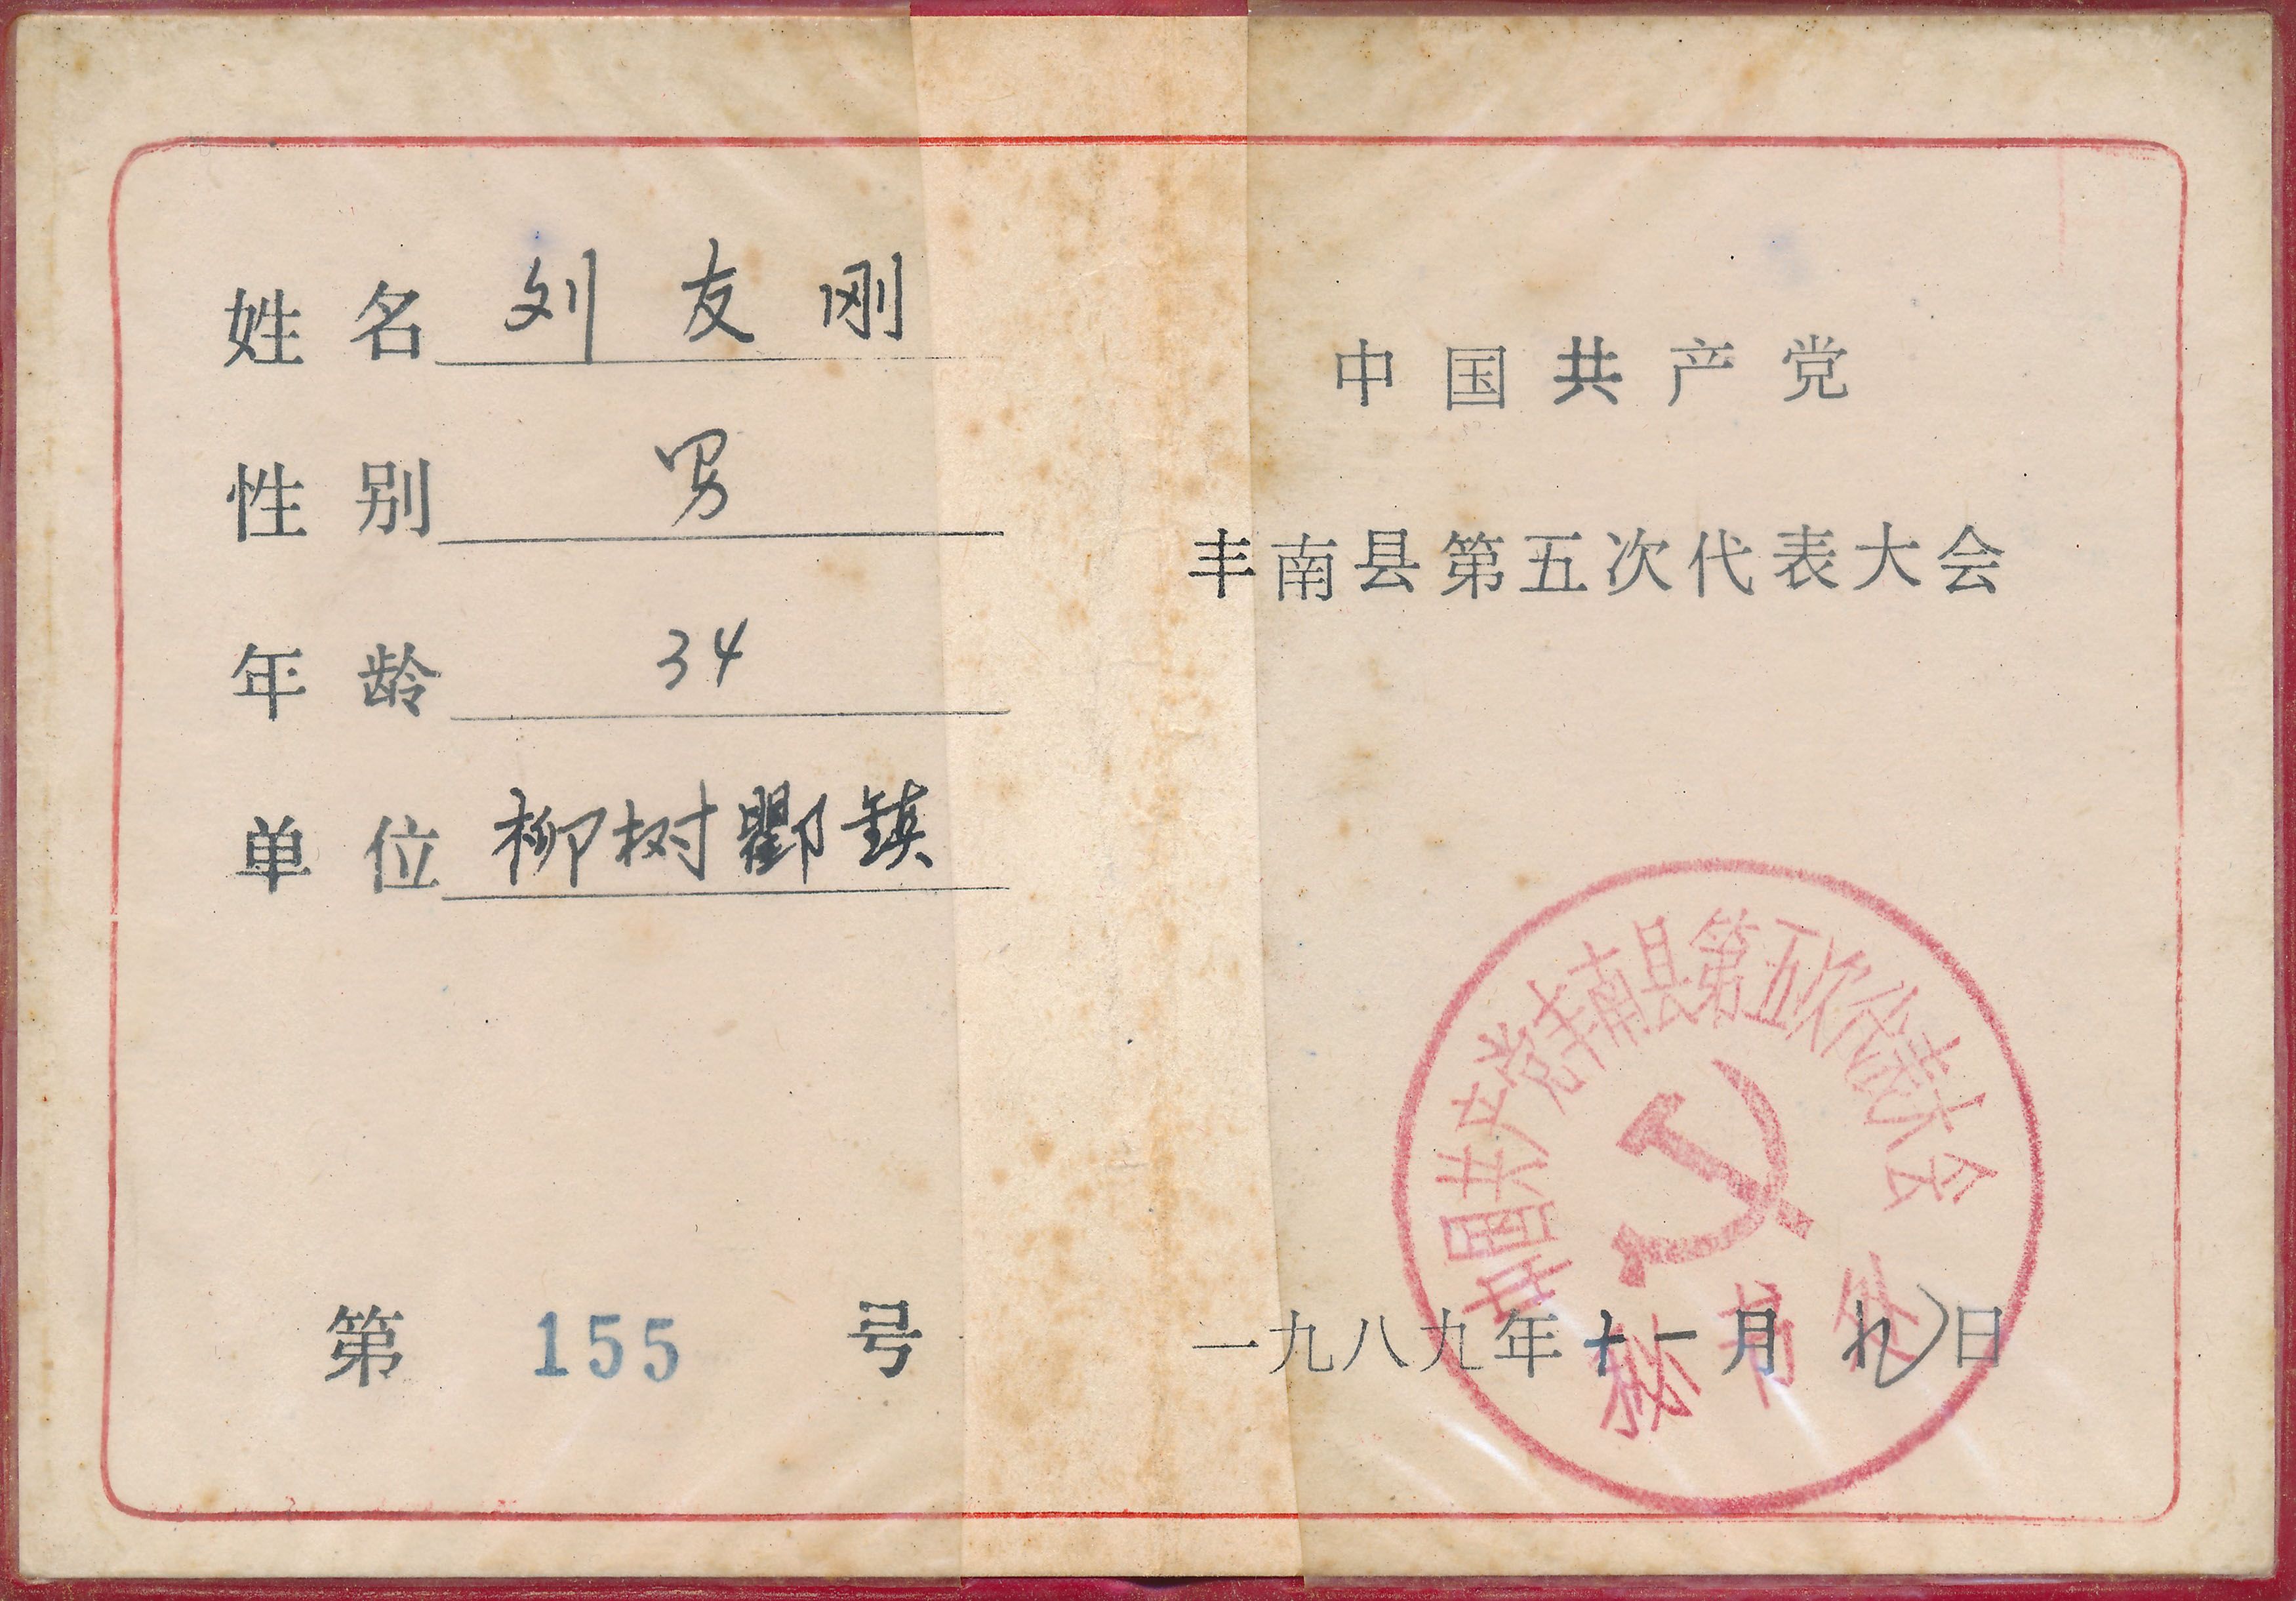 姓名 刘友刚
性别 男
年龄 34
单位 柳树酄镇
第 155 号
中国共产党
丰南县第五次代表大会
中国共产党丰南县第五次代表大会
秘书处
一九八九年十一月九日